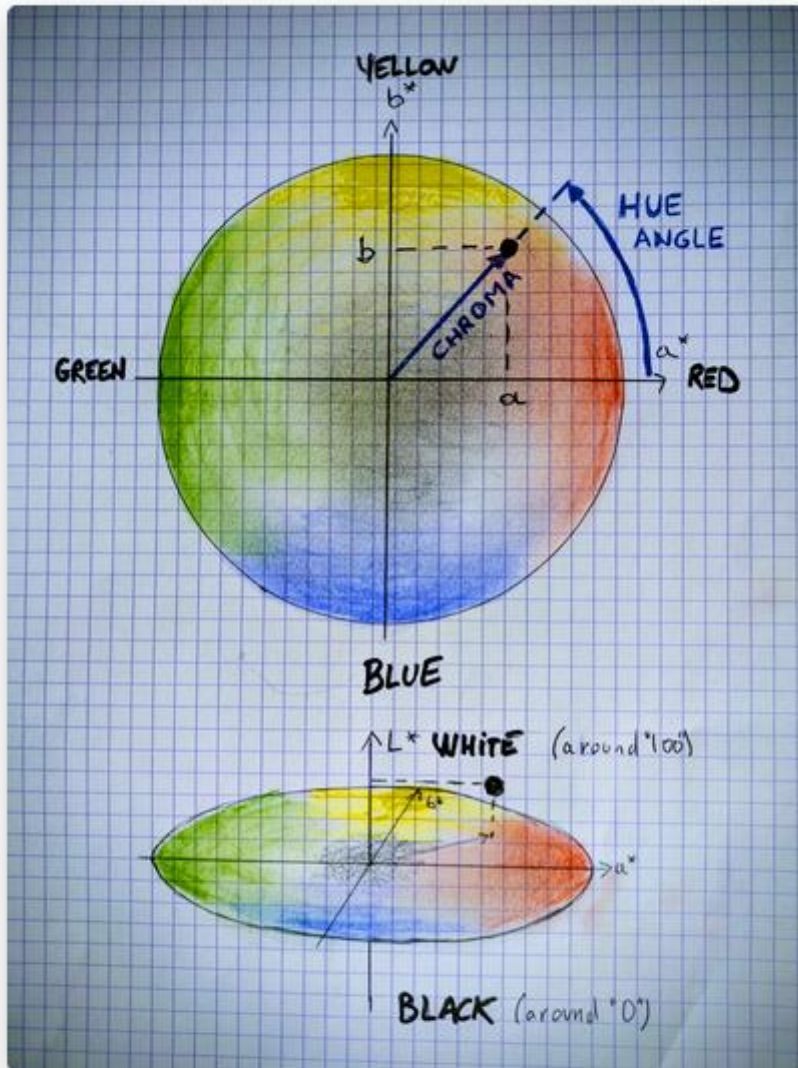 YELLOW
b*
HUE
ANGLE
b
CHROMA
a*
GREEN
RED
a
BLUE
L* WHITE (around "100")
b*
a*
BLACK (around "0")